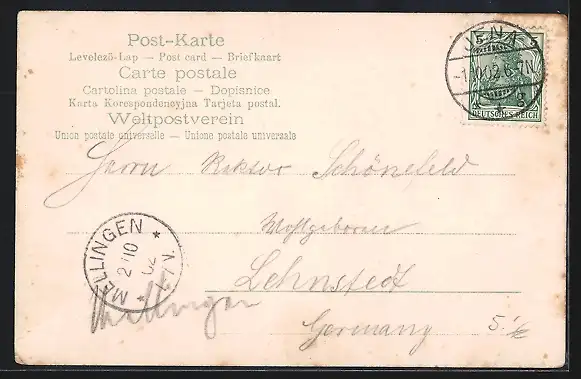 Post-Karte
Levelező-Lap — Post card — Briefkaart
Carte postale
Cartolina postale — Dopisnice
Karta Korespondencyjna Tarjeta postal.
Weltpostverein
Union postale universelle — Unione postale universale
JENA
5 5
-1.10.02.6-7N.
DEUTSCHES REICH
Herrn Rektor Schönefeld
Wohlgeboren
Lehnstedt
Germany
MELLINGEN
2/10
02
Mellingen